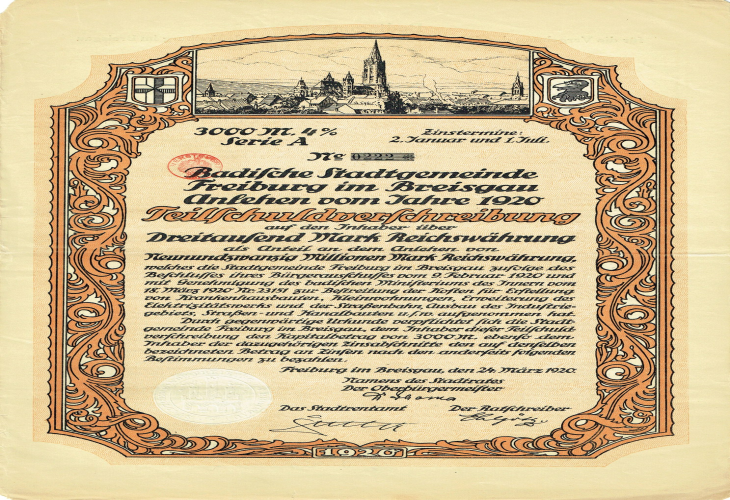 3000 M. 4%
Serie A
Zinstermine:
2. Januar und 1. Juli.
No 0222
Badische Stadtgemeinde
Freiburg im Breisgau
Anlehen vom Jahre 1920
Teilschuldverschreibung
auf den Inhaber über
Dreitausend Mark Reichswährung
als Anteil an dem Anlehen von
Neunundzwanzig Millionen Mark Reichswährung,
welches die Stadtgemeinde Freiburg im Breisgau zufolge des
Beschlusses ihres Bürgerausschusses vom 9. Februar 1920 und
mit Genehmigung des badischen Ministeriums des Innern vom
15. März 1920 Nr. zur Bestreitung der Kosten für Erstellung
von Krankenhausbauten, Kleinwohnungen, Erweiterung des
Elektrizitätswerks und der Straßenbahn, Ausbau des Industrie-
gebiets, Straßen- und Kanalbauten u.s.w. aufgenommen hat.
Durch gegenwärtige Urkunde verpflichtet sich die Stadt-
gemeinde Freiburg im Breisgau, dem Inhaber dieser Teilschuld-
verschreibung den Kapitalbetrag von 3000 M. ebenso dem
Inhaber der dazugehörigen Zinsabschnitte den auf denselben
bezeichneten Betrag an Zinsen nach den anderseits folgenden
Bestimmungen zu bezahlen.
Freiburg im Breisgau, den 24. März 1920.
Namens des Stadtrates
Der Oberbürgermeister
Das Stadtrentamt
Der Ratschreiber
1920